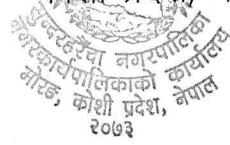 सुन्दरहरैंचा नगरपालिका
नगरकार्यपालिकाको कार्यालय
मोरङ, कोशी प्रदेश, नेपाल
२०७३